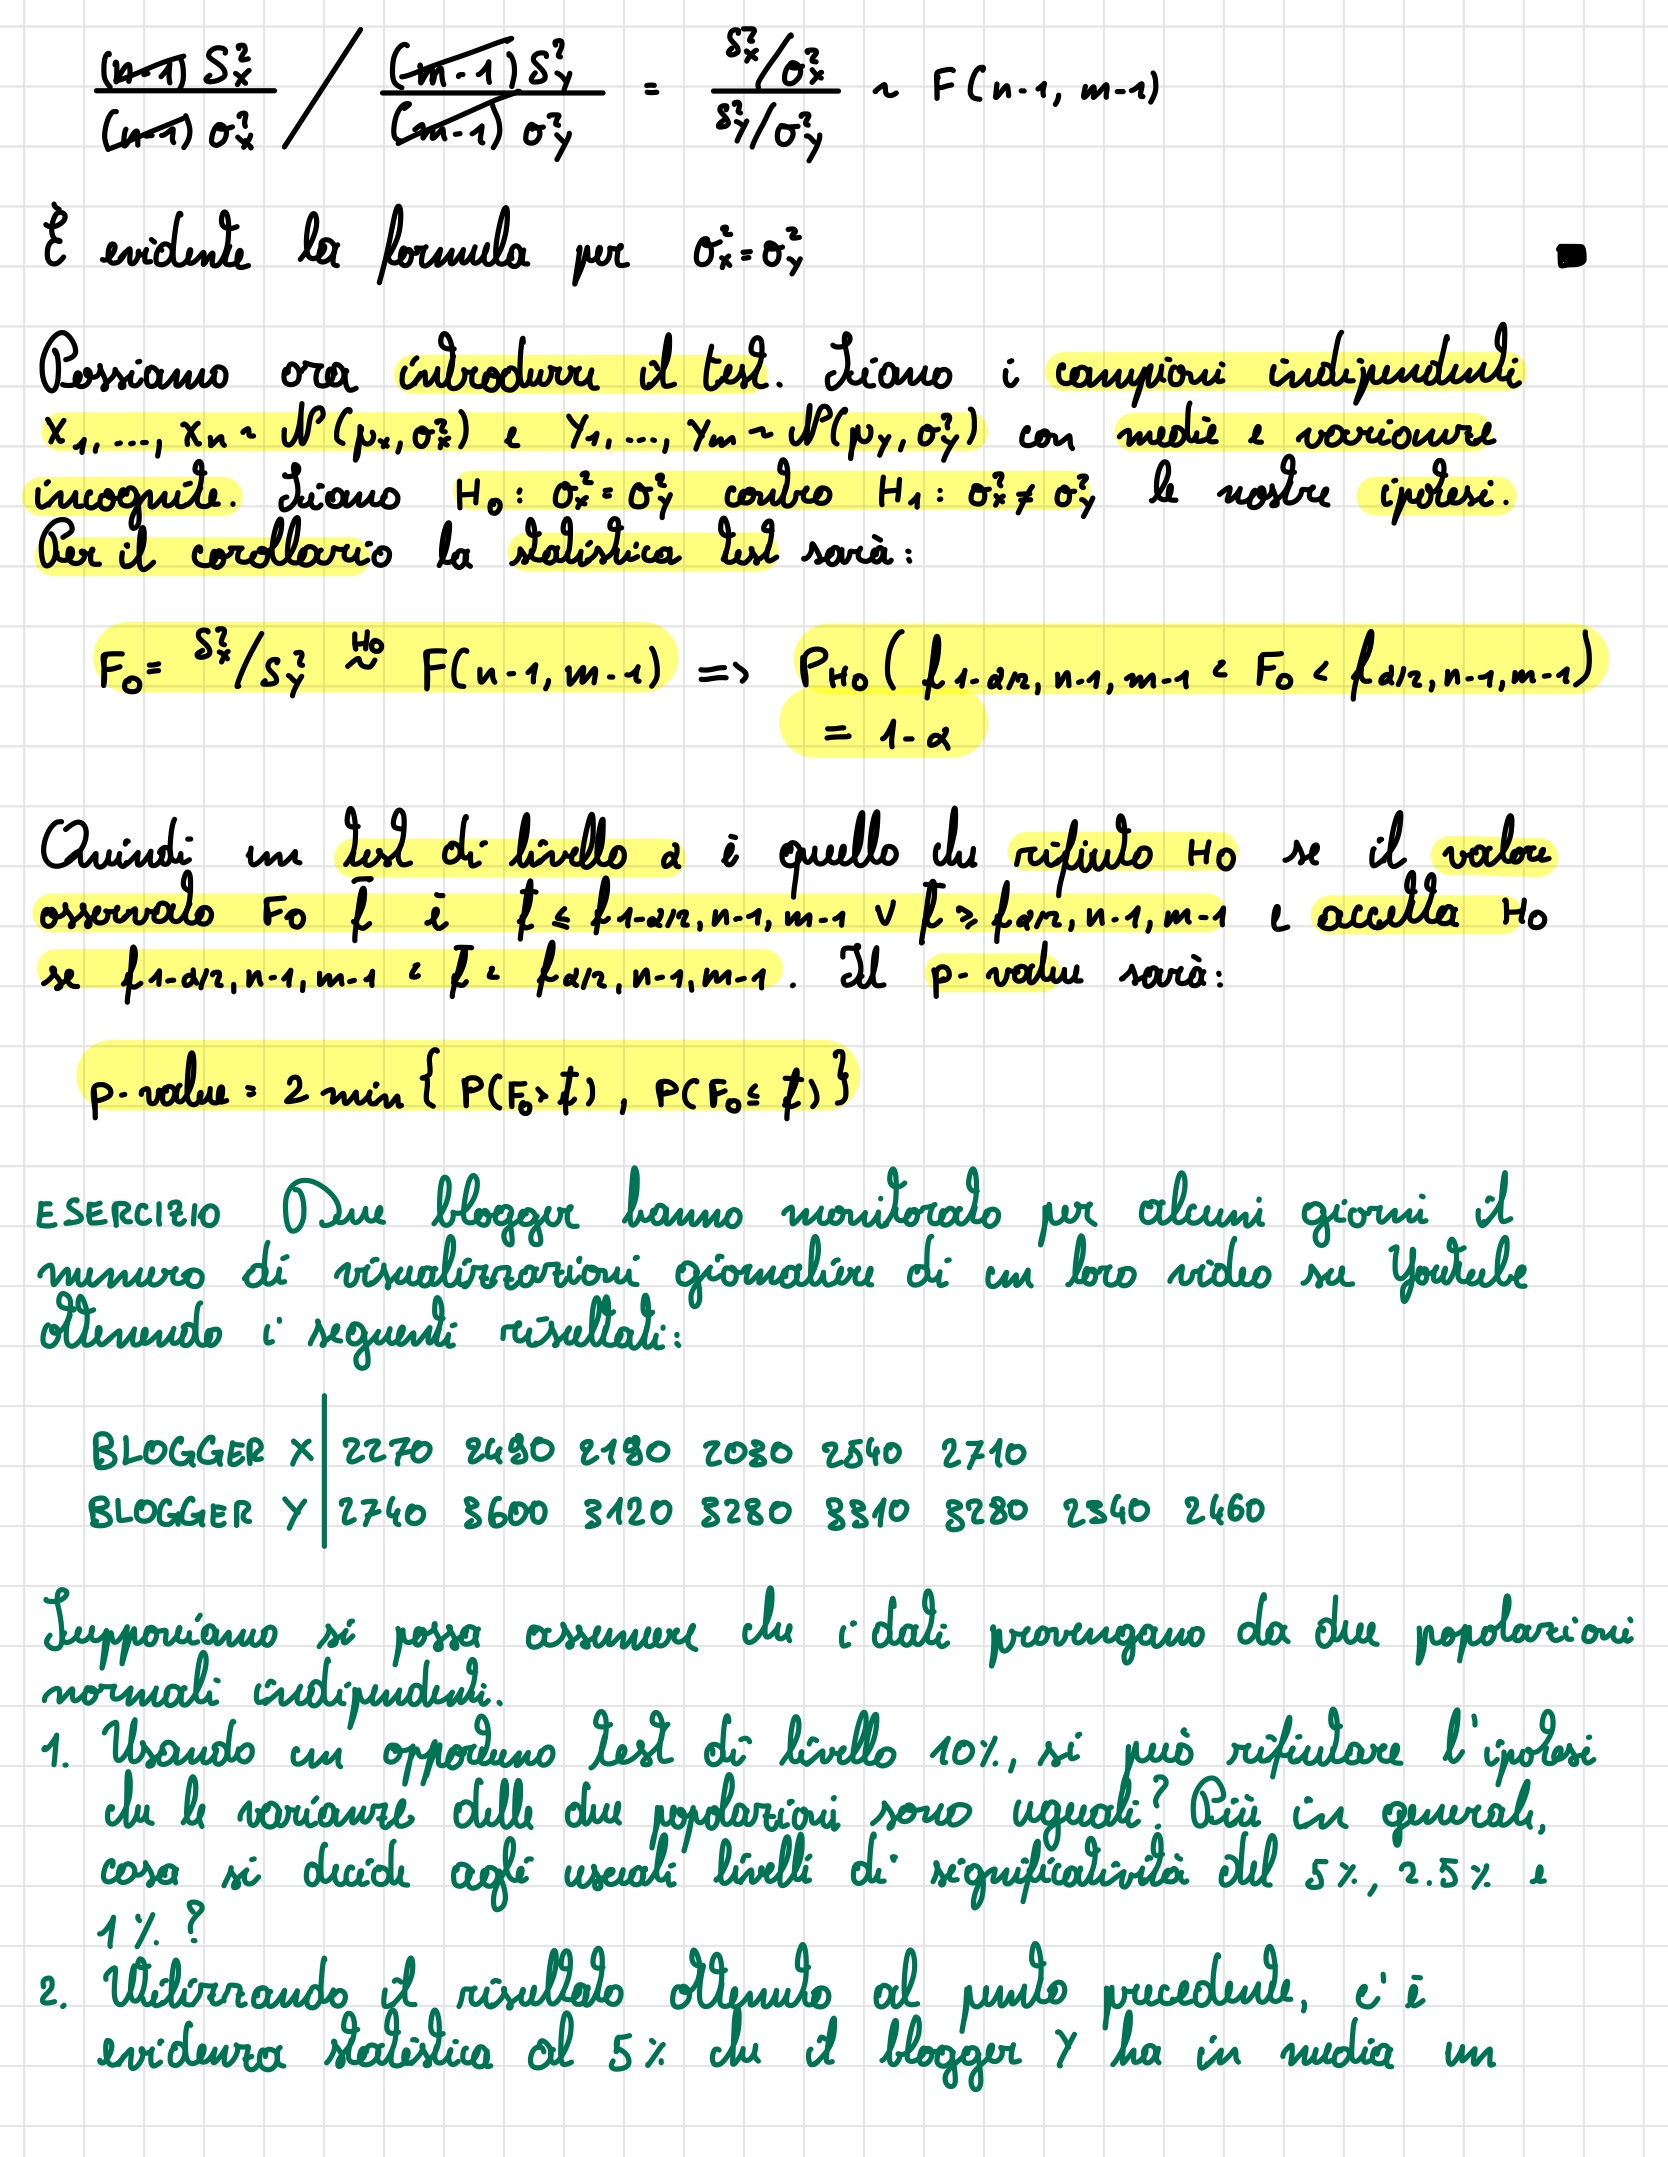 (n-1) S²x / (n-1) σ²x / (m-1) S²y / (m-1) σ²y = S²x/σ²x / S²y/σ²y ~ F(n-1, m-1)
È evidente la formula per σ²x = σ²y
Possiamo ora introdurre il test. Siano i campioni indipendenti
X1, ..., Xn ~ N(μx, σ²x) e Y1, ..., Ym ~ N(μy, σ²y) con medie e varianze
incognite. Siano H0: σ²x = σ²y contro H1: σ²x ≠ σ²y le nostre ipotesi.
Per il corollario la statistica test sarà:
F0 = S²x/S²y ~H0 F(n-1, m-1) => PH0 ( f1-α/2, n-1, m-1 < F0 < fα/2, n-1, m-1 )
= 1-α
Quindi un test di livello α è quello che rifiuta H0 se il valore
osservato F0 f̄ è f̄ ≤ f1-α/2, n-1, m-1 ∨ f̄ ≥ fα/2, n-1, m-1 e accetta H0
se f1-α/2, n-1, m-1 < f̄ < fα/2, n-1, m-1. Il p-value sarà:
p-value = 2 min { P(F0 > f̄), P(F0 ≤ f̄) }
ESERCIZIO Due blogger hanno monitorato per alcuni giorni il
numero di visualizzazioni giornaliere di un loro video su Youtube
ottenendo i seguenti risultati:
BLOGGER X | 2270 2490 2190 2030 2540 2710
BLOGGER Y | 2740 3600 3120 3280 3310 3280 2340 2460
Supponiamo si possa assumere che i dati provengano da due popolazioni
normali indipendenti.
1. Usando un opportuno test di livello 10%, si può rifiutare l'ipotesi
che le varianze delle due popolazioni sono uguali? Più in generale,
cosa si decide agli usuali livelli di significatività del 5%, 2.5% e
1%?
2. Utilizzando il risultato ottenuto al punto precedente, c'è
evidenza statistica al 5% che il blogger Y ha in media un